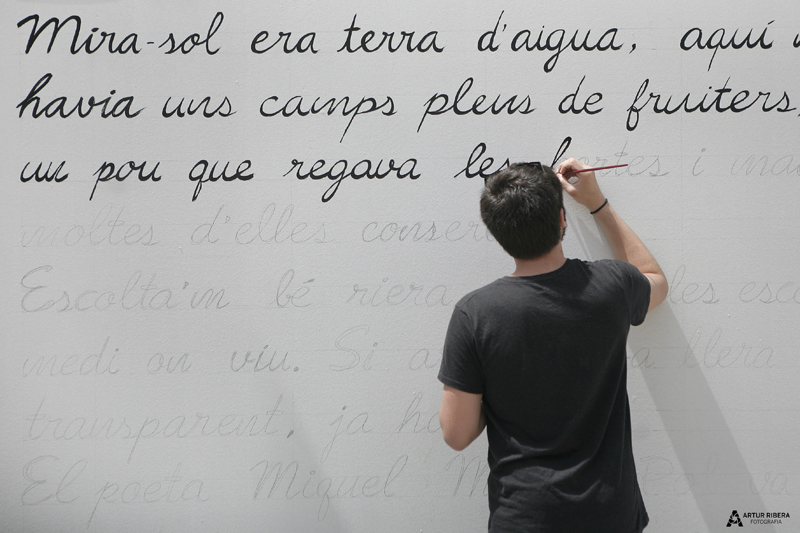 Mira-sol era terra d'aigua, aquí
havia uns camps plens de fruiters,
un pou que regava les hortes i
moltes d'elles
Escolta'm bé riera
medi on viu. Si llera
transparent, ja
El poeta Miquel
ARTUR RIBERA
FOTOGRAFIA